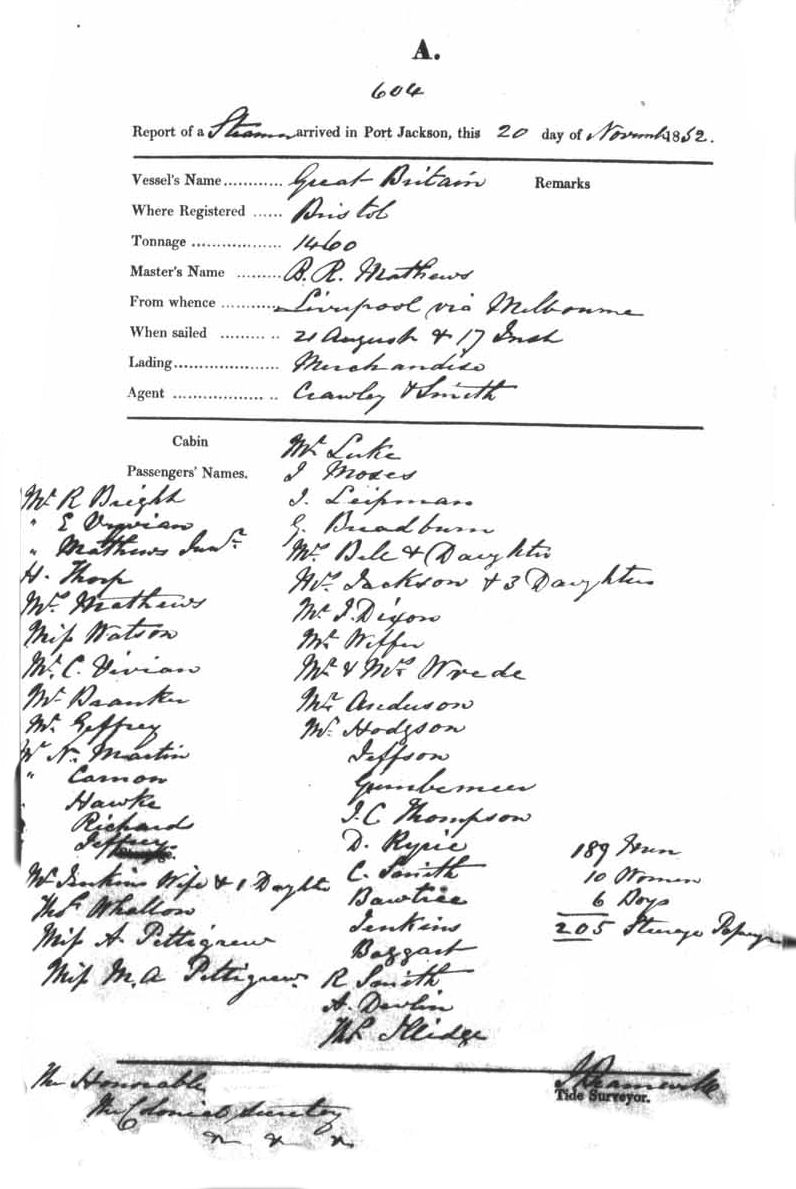 A.
604
Report of a Steamer arrived in Port Jackson, this 20 day of November 1852.
Vessel's Name ............ Great Britain Remarks
Where Registered ...... Bristol
Tonnage .................. 1460
Master's Name ......... B. R. Mathews
From whence ............ Liverpool via Melbourne
When sailed ........ .. 21 August & 17 Inst
Lading ..................... Merchandise
Agent .................. .. Crawley & Smith
Cabin
Passengers' Names.
Mr R Bright
" E Vyvian
" Mathews Junr.
H. Thorp
Mrs Mathews
Miss Watson
Mr. C. Vivian
Mr Branker
Mr. Geffrey
Mr N. Martin
" Camon
Hawke
Richard
Jeffrey
Mr Jenkins Wife & 1 Daughter
Thos Whallon
Miss A Pettigrew
Miss M. A Pettigrew
Mr Luke
J Moses
J. Leipman
G. Bradburn
Mrs Bell & Daughter
Mrs Jackson & 3 Daughters
Mr J. Dixon
Mr
Mr & Mrs Wrede
Mr Anderson
Mr Hodgson
Jeffson
J. C Thompson
D. Ryrie
C. Smith
Bawtree
Jenkins
Baggart
R Smith
A. Devlin
Thos Illidge
189 Men
10 Women
6 Boys
205 Steerage Passengers
The Honorable
The Colonial Secretary
Tide Surveyor.